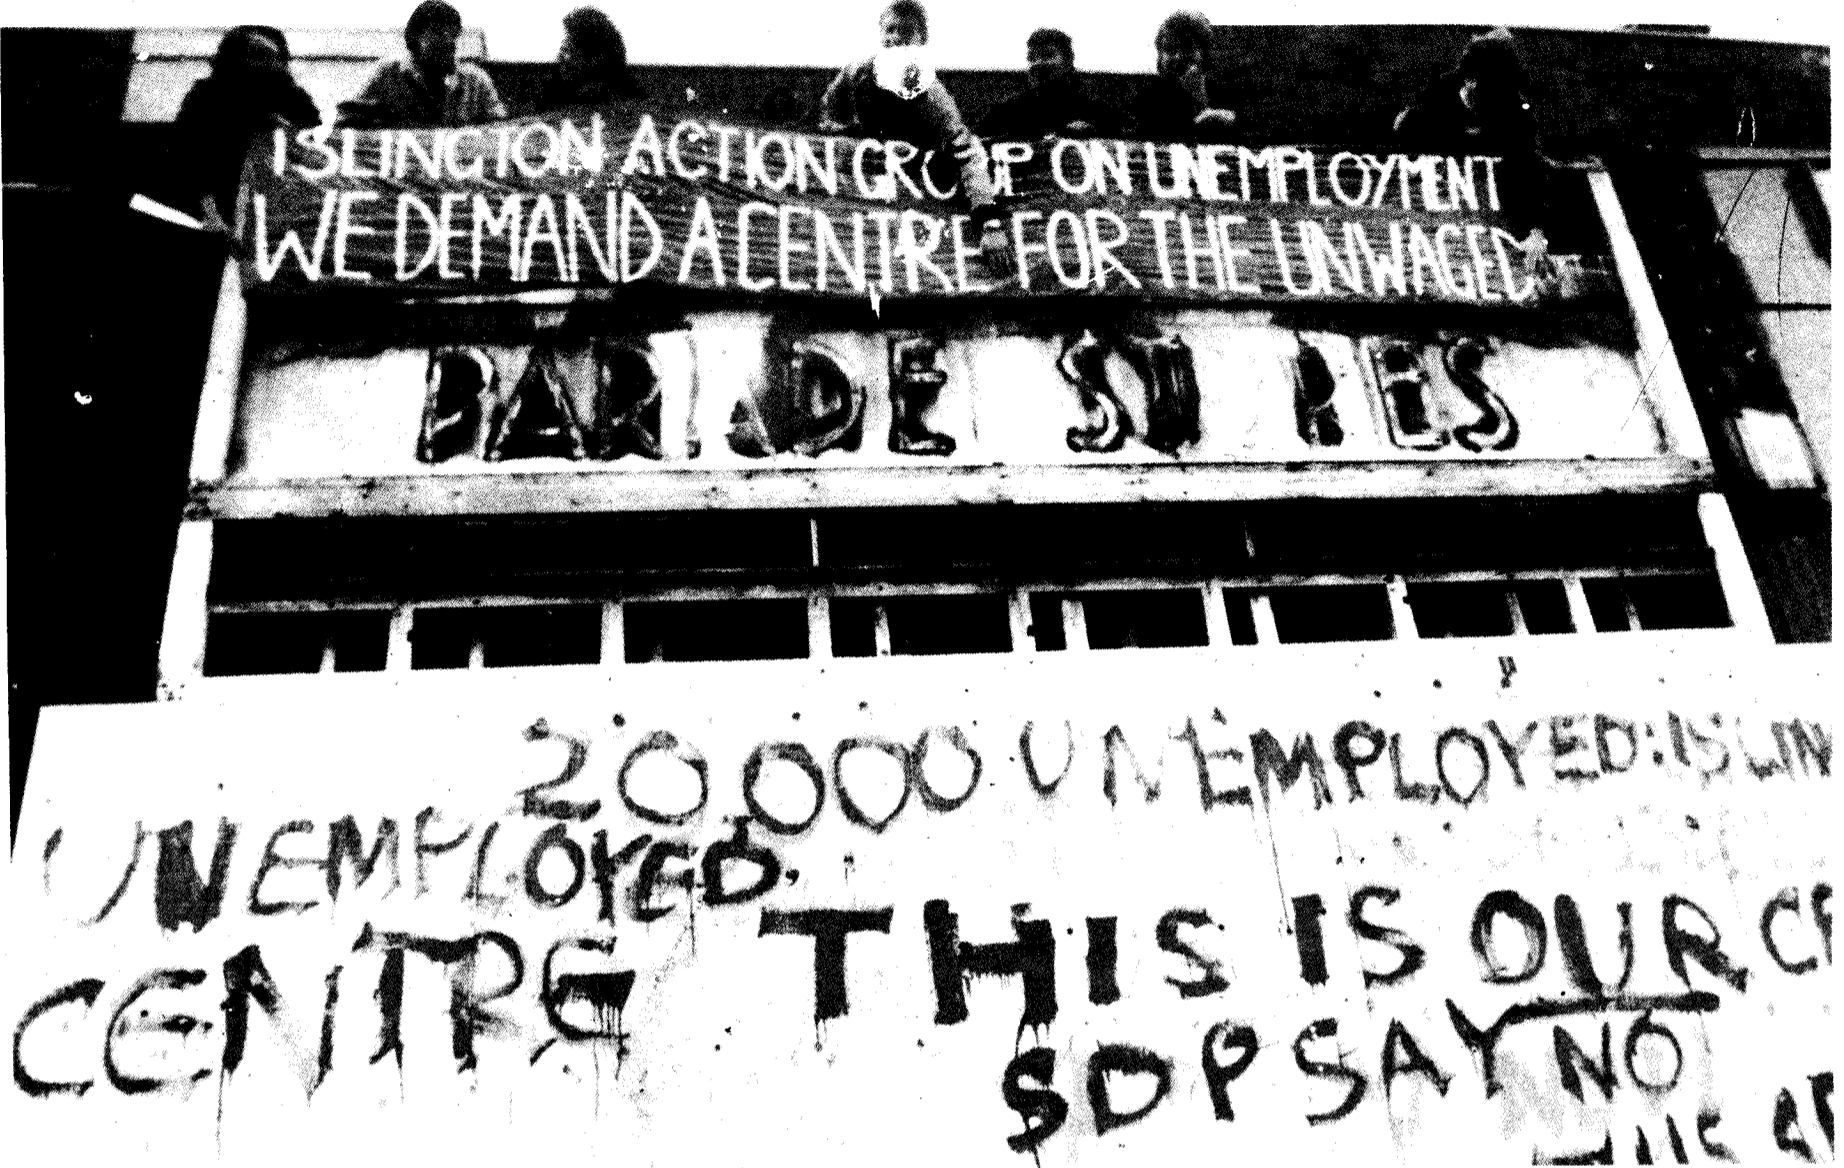 ISLINGTON ACTION GROUP ON UNEMPLOYMENT
WE DEMAND A CENTRE FOR THE UNWAGED
PARADE
20,000 UNEMPLOYED: ISLIN
UNEMPLOYED.
CENTRE THIS IS OUR CE
SDP SAY NO